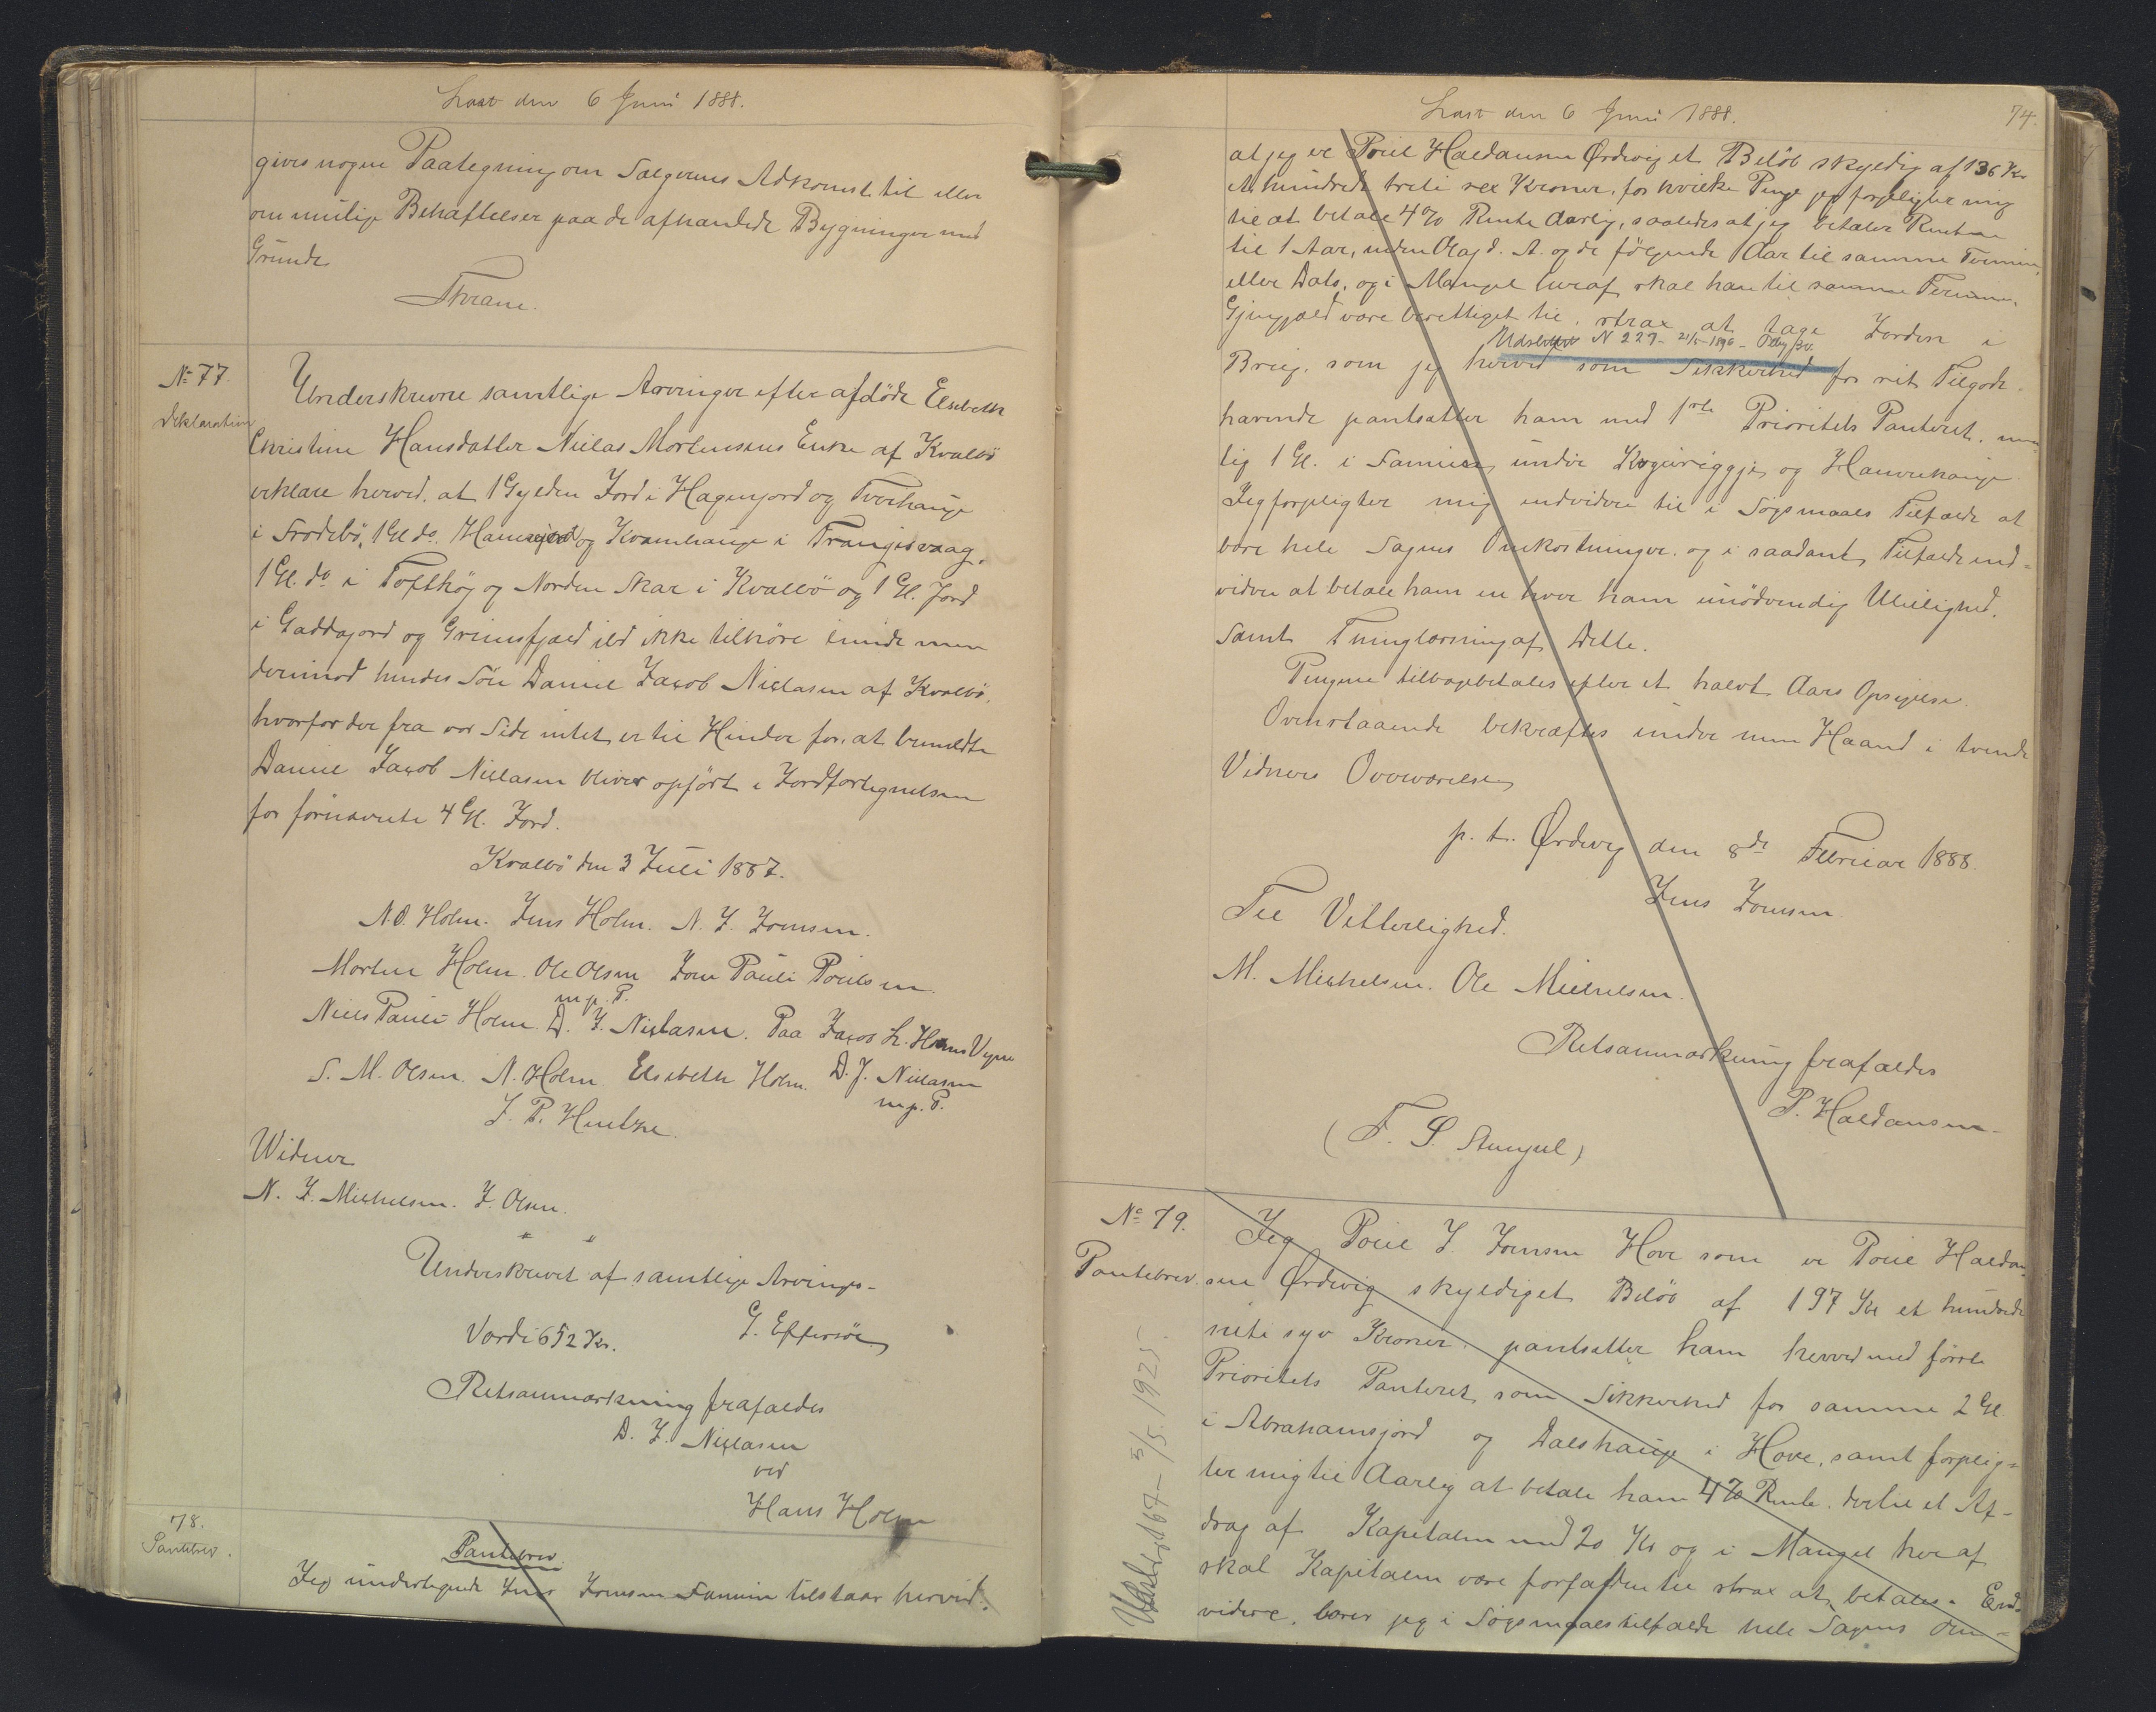 Læst den 6 Juni 1888.
gives nogen Paategning om Sælgerens Adkomst til eller
om mulige Behæftelser paa de afhændede Bygninger med
Grunde
Thrane.
No 77.
Deklaration
Underskrevne samtlige Arvinger efter afdöde Elsebeth
Christine Hansdatter Niclas Mortensens Enke af Kvalbö
erklære herved, at 1 Gylden Jord i Hagenjord og Tverhauge
i Frodebö, 1 Gl. do. og Kvamhauge i Trangisvaag,
1 Gl. do i Tofthöj og Norden Skar i Kvalbö og 1 Gl. Jord
i Gaddajord og Grimsfjæld ikke tilhöre hende men
derimod hendes Sön Daniel Jacob Niclasen af Kvalbö,
hvorfor der fra vor Side intet er til Hinder for, at bemeldte
Daniel Jacob Niclasen bliver opfört i Jordfortegnelsen
for förnævnte 4 Gl. Jord.
Kvalbö den 3 Juli 1887.
N. O. Holm. Jens Holm. N. J. Joensen.
Morten Holm. Ole Olsen Joen Pauli Poulsen.
m. p. P.
Niels Pauli Holm. D. J. Niclasen. Paa Jacob L. Holms Vegne
S. M. Olsen. N. Holm. Elsebeth Holm. D. J. Niclasen
m. p. P.
J. P. Hentze.
Widner
N. J. Michelsen. J. Olsen.
" "
Underskrevet af samtlige Arvinge-
G. Effersöe
Værdi 652 Kr.
Retsanmærkning frafaldes
D. J. Niclasen
ved
Hans Holm
78.
Pantebrev.
Pantebrev.
Jeg undertegnede Jens Joensen Famien tilstaar herved,
Læst den 6 Juni 1888.
74.
at jeg er Poul Haldansen Ørdevig et Belöb skyldig af 136 Kr
et hundrede treti sex Kroner, for hvilke Penge jeg forpligter mig
til at betale 4% Rente Aarlig, saaledes at jeg betaler Renten
til 1 Aar, inden Olaj d. A. og de fölgende Aar til samme Termin,
eller Dato, og i Mangel heraf skal han til samme Termin,
Gjengjæld være berettiget til, strax at tage Jorden i
Udslettet N 227
Brug, som jeg herved som Sikkerhed for sit Tilgode-
havende pantsætter ham med 1ste Prioritets Panteret, nem
lig 1 Gl. i Famien under og
Jeg forpligter mig endvidere til i Sögsmaals Tilfælde at
bære hele Sagens Omkostninger, og i saadant Tilfælde end-
videre at betale ham en hver ham unödvendig Uleilighed.
Samt Thinglæsning af Dette.
Pengene tilbagebetales efter et halvt Aars Opsigelse.
Ovenstaaende bekræftes under min Haand i tvende
Vidners Overværelse
p. t. Ørdevig den 8de Februar 1888.
Jens Joensen.
Til Vitterlighed.
M. Michelsen. Ole Michelsen.
Retsanmærkning frafaldes
P. Haldansen-
(F. S. Stempel)
No 79.
Pantebrev.
Jeg Poul J. Joensen Hove som er Poul Haldan
sen Ørdevig skyldig et Belöb af 197 Kr et hundrede
niti syv Kroner pantsætter ham herved med förste
Prioritets Panteret som Sikkerhed for samme 2 Gl.
i Abrahamsjord og Dalshauge i Hove, samt forplig-
ter mig til Aarlig at betale ham 4% Rente, dertil et Af-
drag af Kapitalen med 20 Kr og i Mangel her af
skal Kapitalen være forfalden til strax at betales. End-
videre, bærer jeg i Sögsmaalstilfælde hele Sagens Om-
5/5. 1925